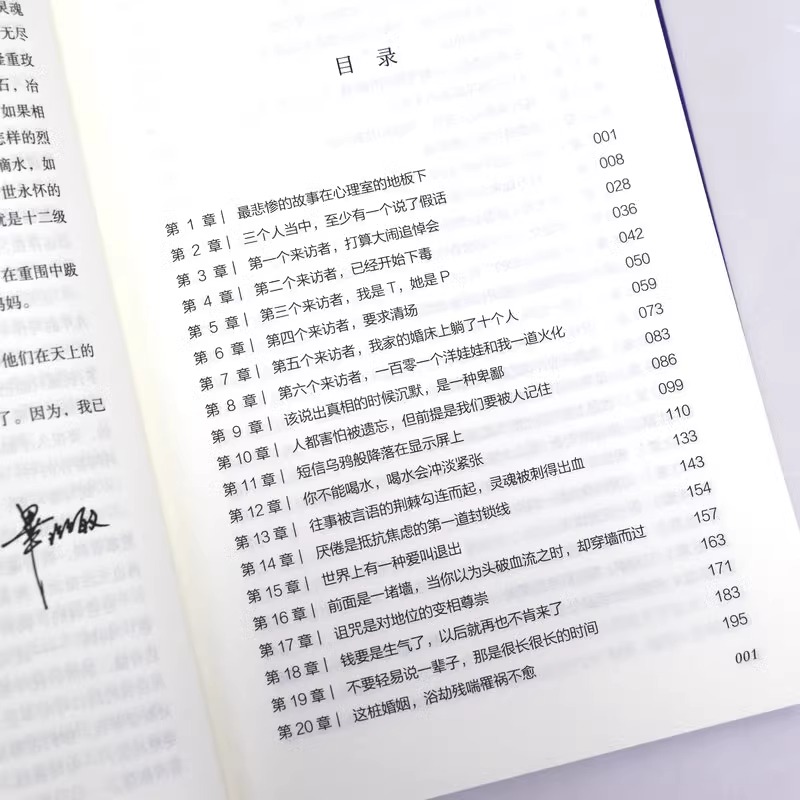 灵魂
无尽
重玫
石，冶
如果相
怎样的烈
滴水，如
世永怀的
就是十二级
在重围中跋
妈妈。
他们在天上的
了。因为，我已
畢淑敏
目 录
第 1 章| 最悲惨的故事在心理室的地板下 001
第 2 章| 三个人当中，至少有一个说了假话 008
第 3 章| 第一个来访者，打算大闹追悼会 028
第 4 章| 第二个来访者，已经开始下毒 036
第 5 章| 第三个来访者，我是T，她是P 042
第 6 章| 第四个来访者，要求清场 050
第 7 章| 第五个来访者，我家的婚床上躺了十个人 059
第 8 章| 第六个来访者，一百零一个洋娃娃和我一道火化 073
第 9 章| 该说出真相的时候沉默，是一种卑鄙 083
第10章| 人都害怕被遗忘，但前提是我们要被人记住 086
第11章| 短信乌鸦般降落在显示屏上 099
第12章| 你不能喝水，喝水会冲淡紧张 110
第13章| 往事被言语的荆棘勾连而起，灵魂被刺得出血 133
第14章| 厌倦是抵抗焦虑的第一道封锁线 143
第15章| 世界上有一种爱叫退出 154
第16章| 前面是一堵墙，当你以为头破血流之时，却穿墙而过 157
第17章| 诅咒是对地位的变相尊崇 163
第18章| 钱要是生气了，以后就再也不肯来了 171
第19章| 不要轻易说一辈子，那是很长很长的时间 183
第20章| 这桩婚姻，浴劫残喘罹祸不愈 195
001